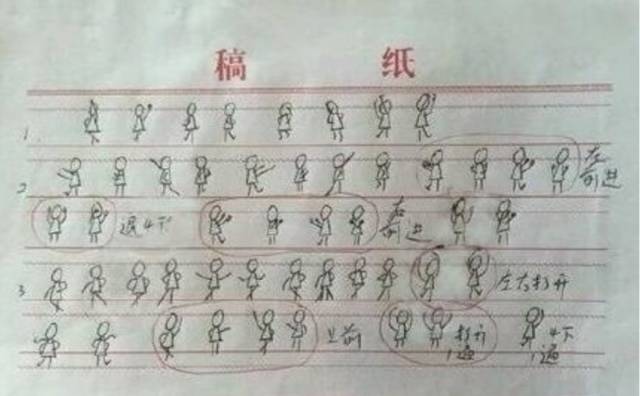 稿 纸
1
2 左前进
退4下 右前进
3 左右打开
打开1遍 4下1遍